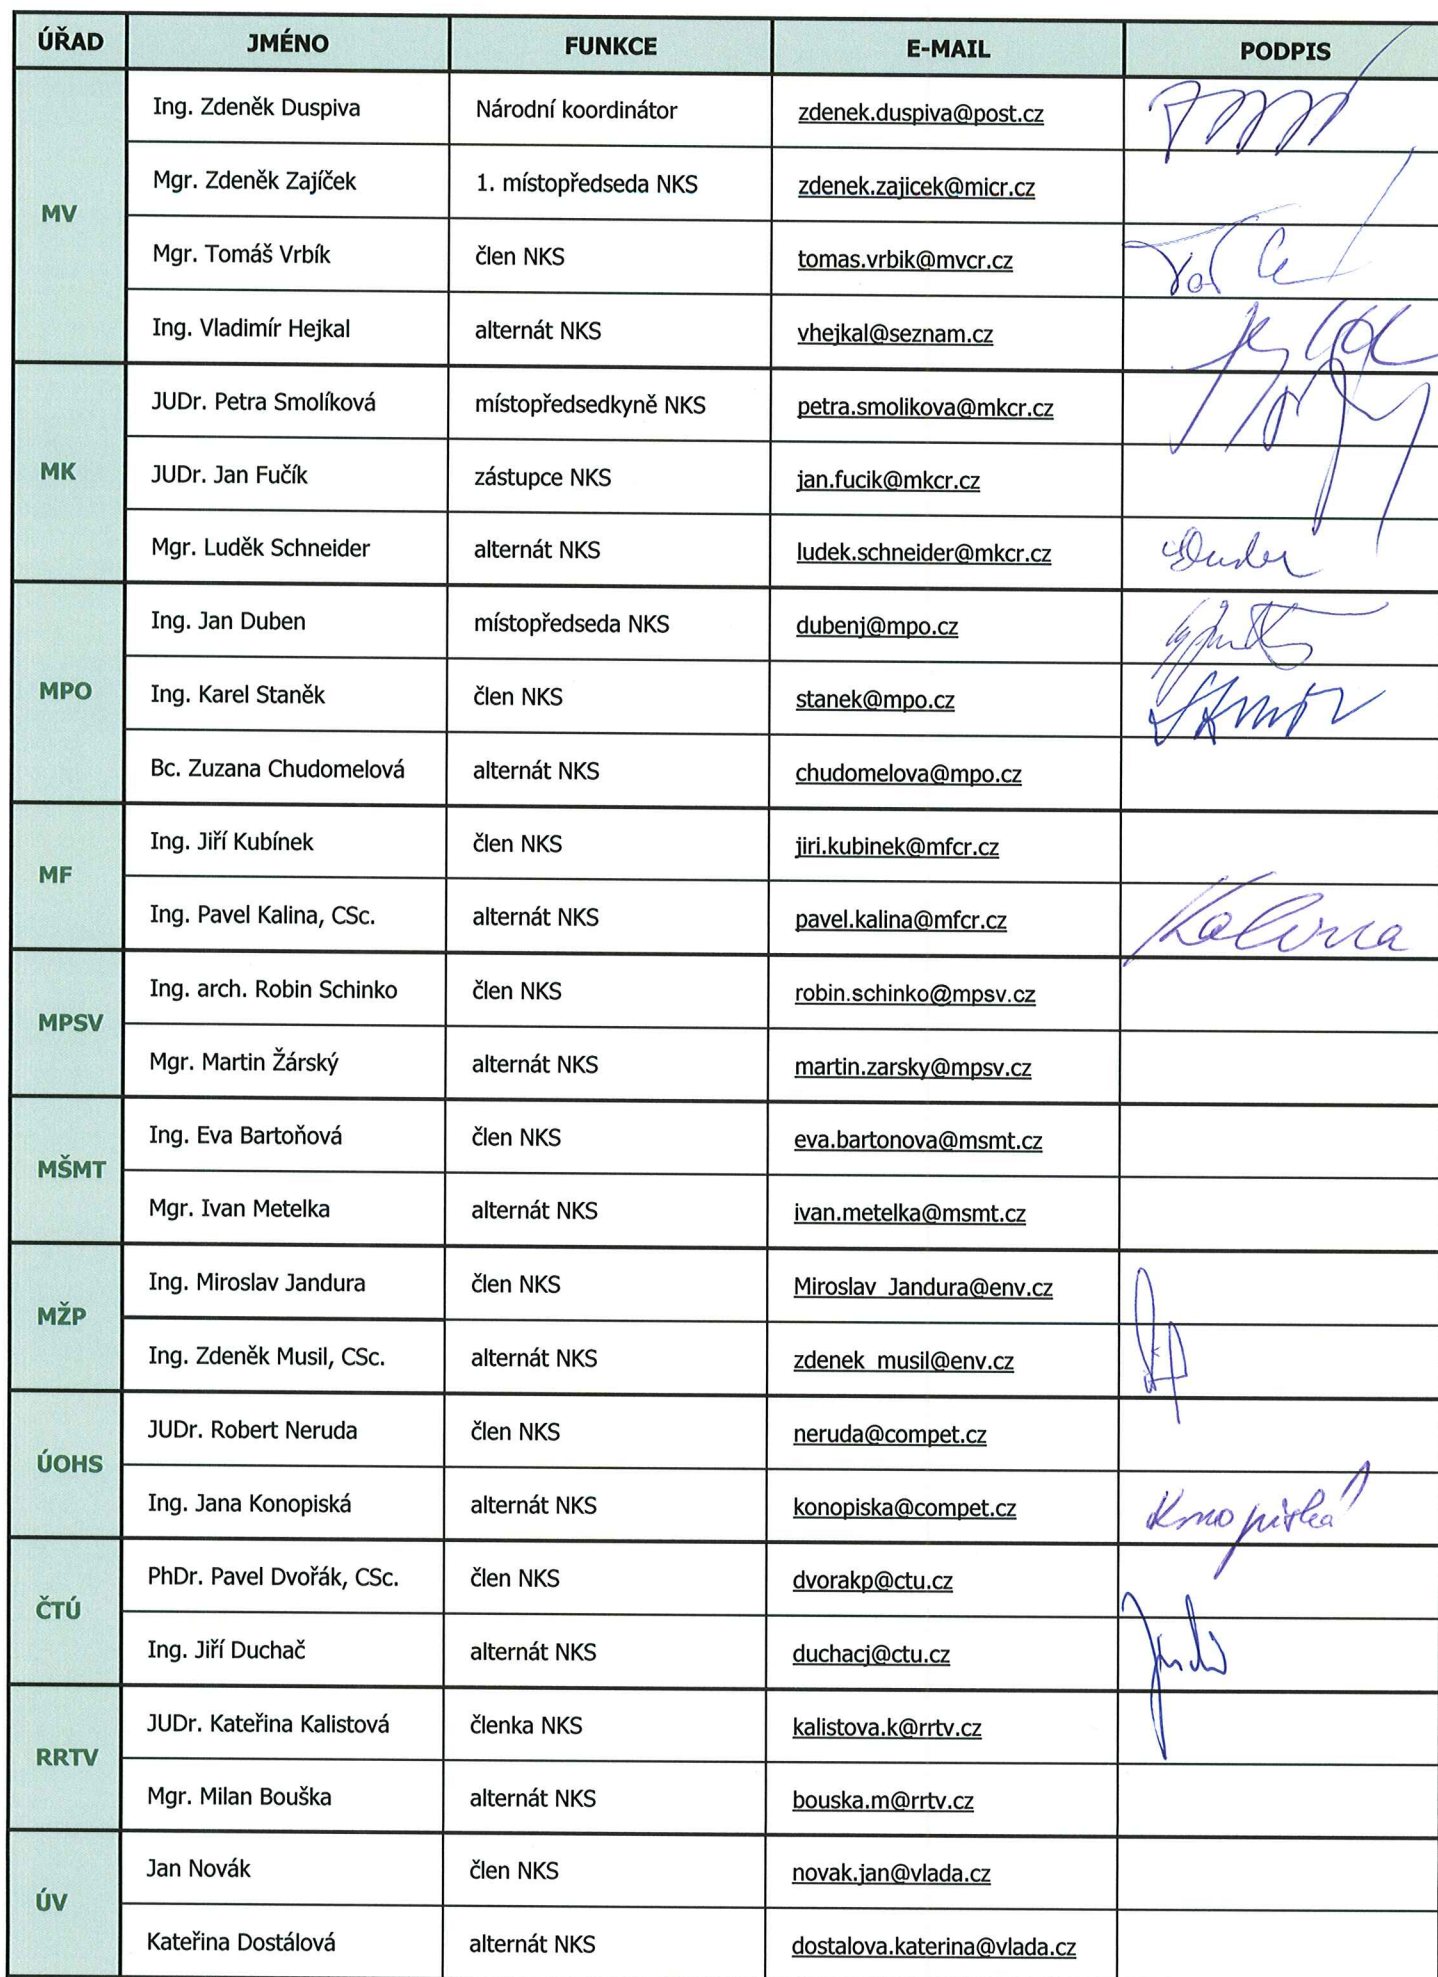 ÚŘAD JMÉNO FUNKCE E-MAIL PODPIS
Ing. Zdeněk Duspiva Národní koordinátor zdenek.duspiva@post.cz
Mgr. Zdeněk Zajíček 1. místopředseda NKS zdenek.zajicek@micr.cz
MV
Mgr. Tomáš Vrbík člen NKS tomas.vrbik@mvcr.cz
Ing. Vladimír Hejkal alternát NKS vhejkal@seznam.cz
JUDr. Petra Smolíková místopředsedkyně NKS petra.smolikova@mkcr.cz
MK JUDr. Jan Fučík zástupce NKS jan.fucik@mkcr.cz
Mgr. Luděk Schneider alternát NKS ludek.schneider@mkcr.cz
Ing. Jan Duben místopředseda NKS dubenj@mpo.cz
MPO Ing. Karel Staněk člen NKS stanek@mpo.cz
Bc. Zuzana Chudomelová alternát NKS chudomelova@mpo.cz
Ing. Jiří Kubínek člen NKS jiri.kubinek@mfcr.cz
MF
Ing. Pavel Kalina, CSc. alternát NKS pavel.kalina@mfcr.cz Kalina
Ing. arch. Robin Schinko člen NKS robin.schinko@mpsv.cz
MPSV
Mgr. Martin Žárský alternát NKS martin.zarsky@mpsv.cz
Ing. Eva Bartoňová člen NKS eva.bartonova@msmt.cz
MŠMT
Mgr. Ivan Metelka alternát NKS ivan.metelka@msmt.cz
Ing. Miroslav Jandura člen NKS Miroslav_Jandura@env.cz
MŽP
Ing. Zdeněk Musil, CSc. alternát NKS zdenek_musil@env.cz
JUDr. Robert Neruda člen NKS neruda@compet.cz
ÚOHS
Ing. Jana Konopiská alternát NKS konopiska@compet.cz Konopiská
PhDr. Pavel Dvořák, CSc. člen NKS dvorakp@ctu.cz
ČTÚ
Ing. Jiří Duchač alternát NKS duchacj@ctu.cz
JUDr. Kateřina Kalistová členka NKS kalistova.k@rrtv.cz
RRTV
Mgr. Milan Bouška alternát NKS bouska.m@rrtv.cz
Jan Novák člen NKS novak.jan@vlada.cz
ÚV
Kateřina Dostálová alternát NKS dostalova.katerina@vlada.cz